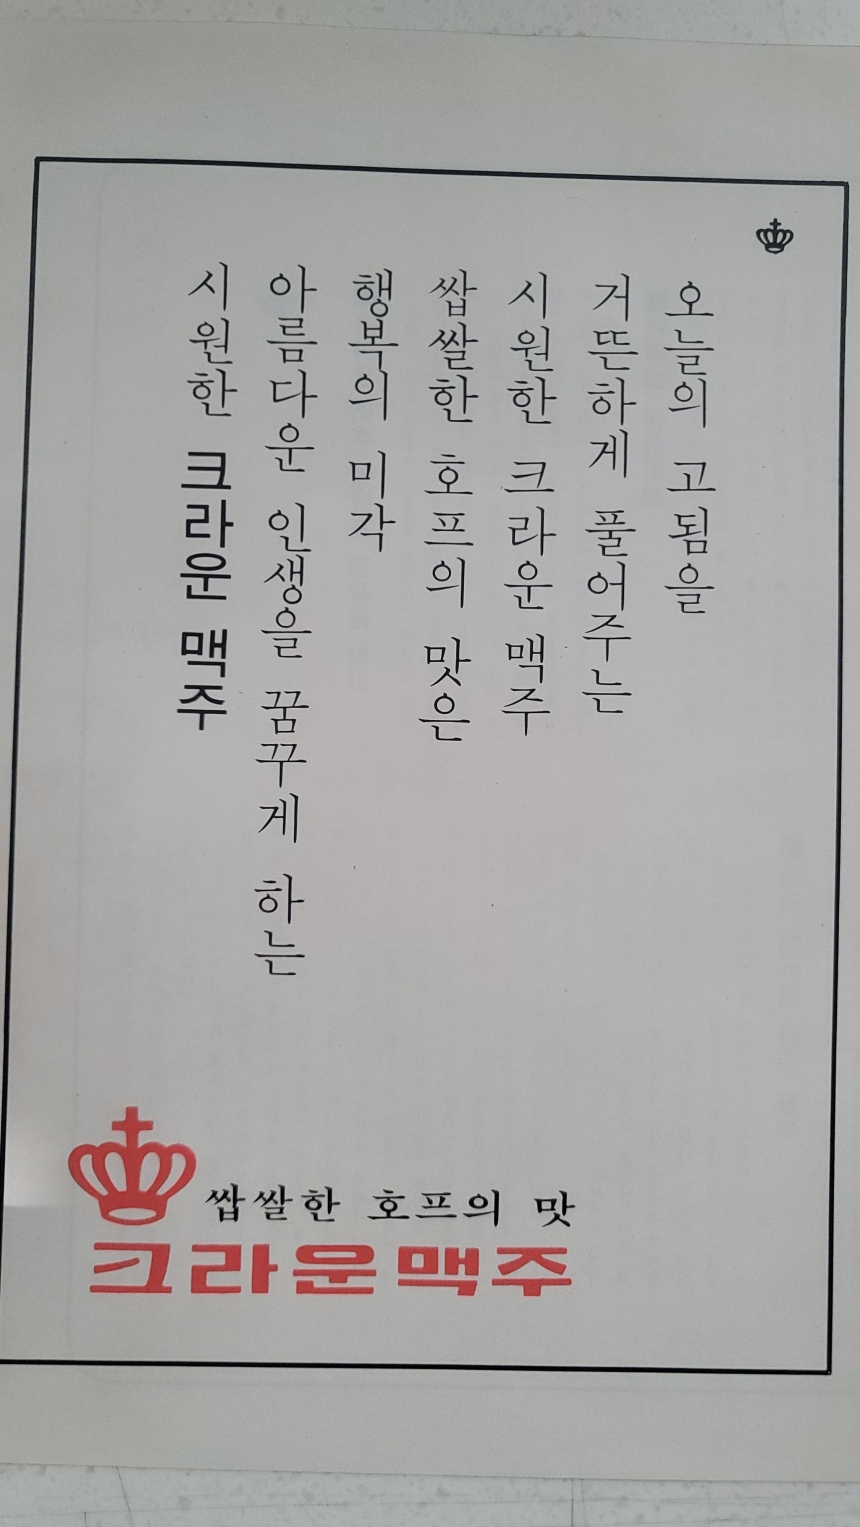 오늘의 고됨을
거뜬하게 풀어주는
시원한 크라운 맥주
쌉쌀한 호프의 맛은
행복의 미각
아름다운 인생을 꿈꾸게 하는
시원한 크라운 맥주
쌉쌀한 호프의 맛
크라운맥주